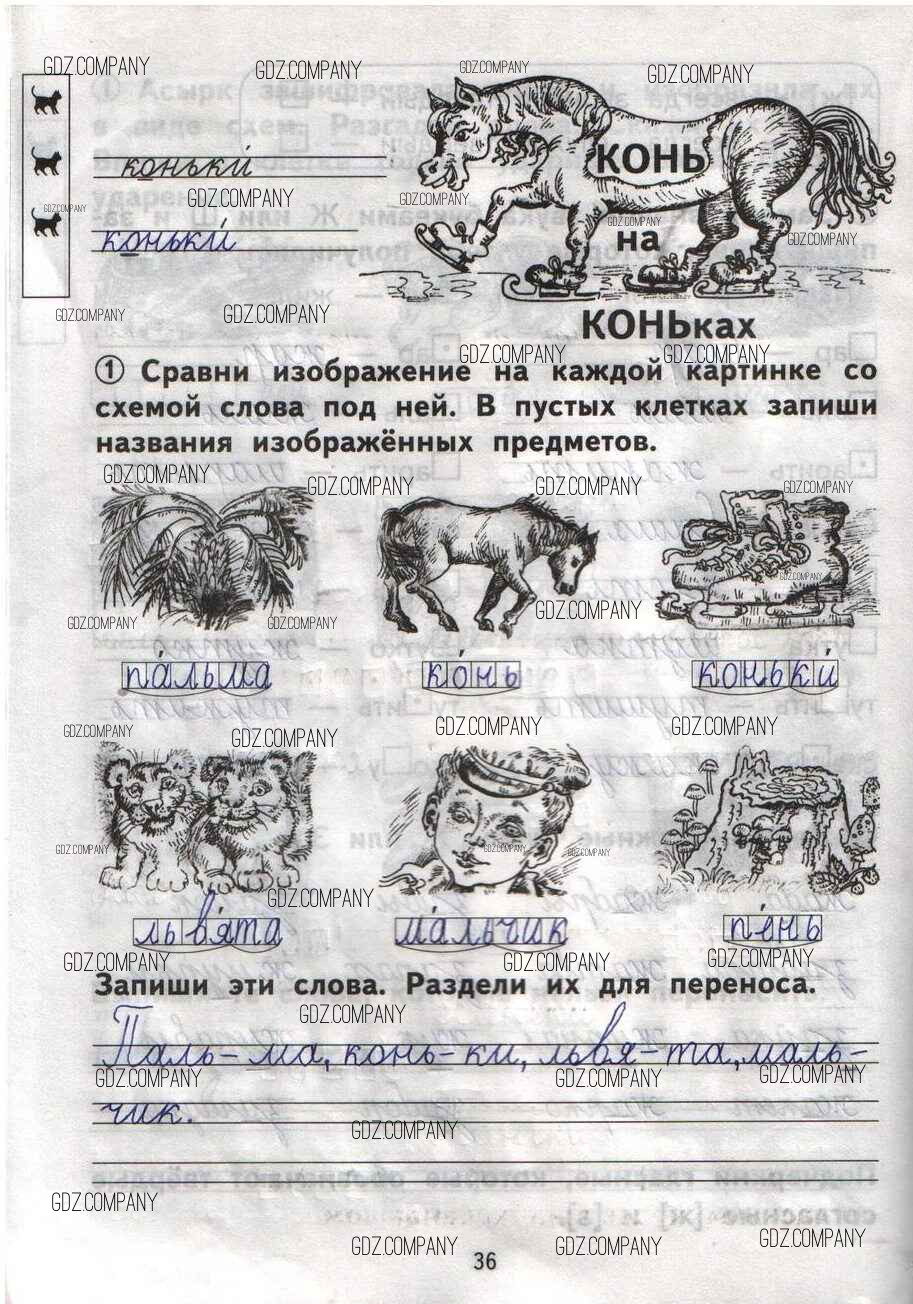 GDZ.COMPANY
GDZ.COMPANY
GDZ.COMPANY
GDZ.COMPANY
коньки́
КОНЬ
GDZ.COMPANY
GDZ.COMPANY
GDZ.COMPANY
GDZ.COMPANY
коньки́
на
GDZ.COMPANY
GDZ.COMPANY
GDZ.COMPANY
КОНЬках
GDZ.COMPANY
GDZ.COMPANY
① Сравни изображение на каждой картинке со
схемой слова под ней. В пустых клетках запиши
названия изображённых предметов.
GDZ.COMPANY
GDZ.COMPANY
GDZ.COMPANY
GDZ.COMPANY
GDZ.COMPANY
GDZ.COMPANY
GDZ.COMPANY
GDZ.COMPANY
па́льма ко́нь коньки́
GDZ.COMPANY
GDZ.COMPANY
GDZ.COMPANY
GDZ.COMPANY
GDZ.COMPANY
GDZ.COMPANY
GDZ.COMPANY
GDZ.COMPANY
львя́та ма́льчик пе́нь
GDZ.COMPANY
GDZ.COMPANY
GDZ.COMPANY
Запиши эти слова. Раздели их для переноса.
GDZ.COMPANY
Паль-ма, конь-ки, львя-та, маль-
GDZ.COMPANY
GDZ.COMPANY
GDZ.COMPANY
чик.
GDZ.COMPANY
GDZ.COMPANY
GDZ.COMPANY
GDZ.COMPANY
GDZ.COMPANY
36